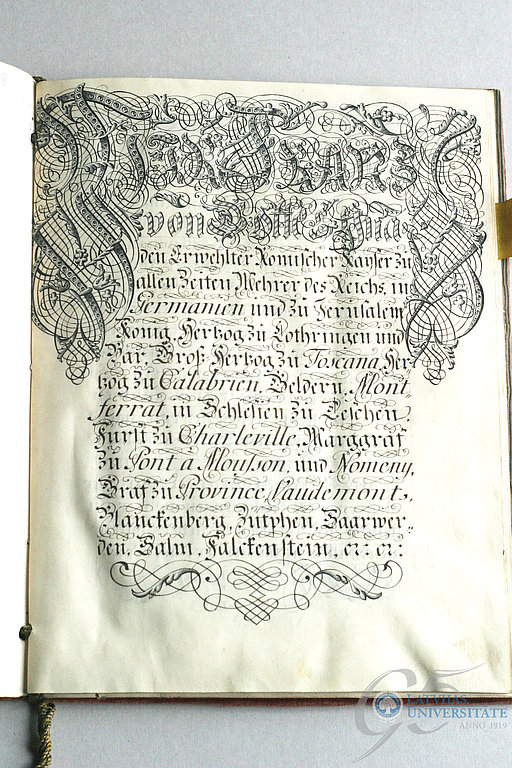 Wir Franz
von Gottes Gna
den Erwehlter Römischer Kayser zu
allen Zeiten Mehrer des Reichs, in
Germanien und zu Jerusalem
König, Hertzog zu Lothringen und
Bar, Groß-Hertzog zu Toscana, Her-
tzog zu Calabrien, Geldern, Mont-
ferrat, in Schlesien zu Teschen
Fürst zu Charleville, Marggraf
zu Pont à Mousson, und Nomeny,
Graf zu Province, Vaudemont,
Blanckenberg, Zütphen, Saarwer-
den, Salm, Falckenstein, etc: etc:
95
LATVIJAS
UNIVERSITĀTE
ANNO 1919